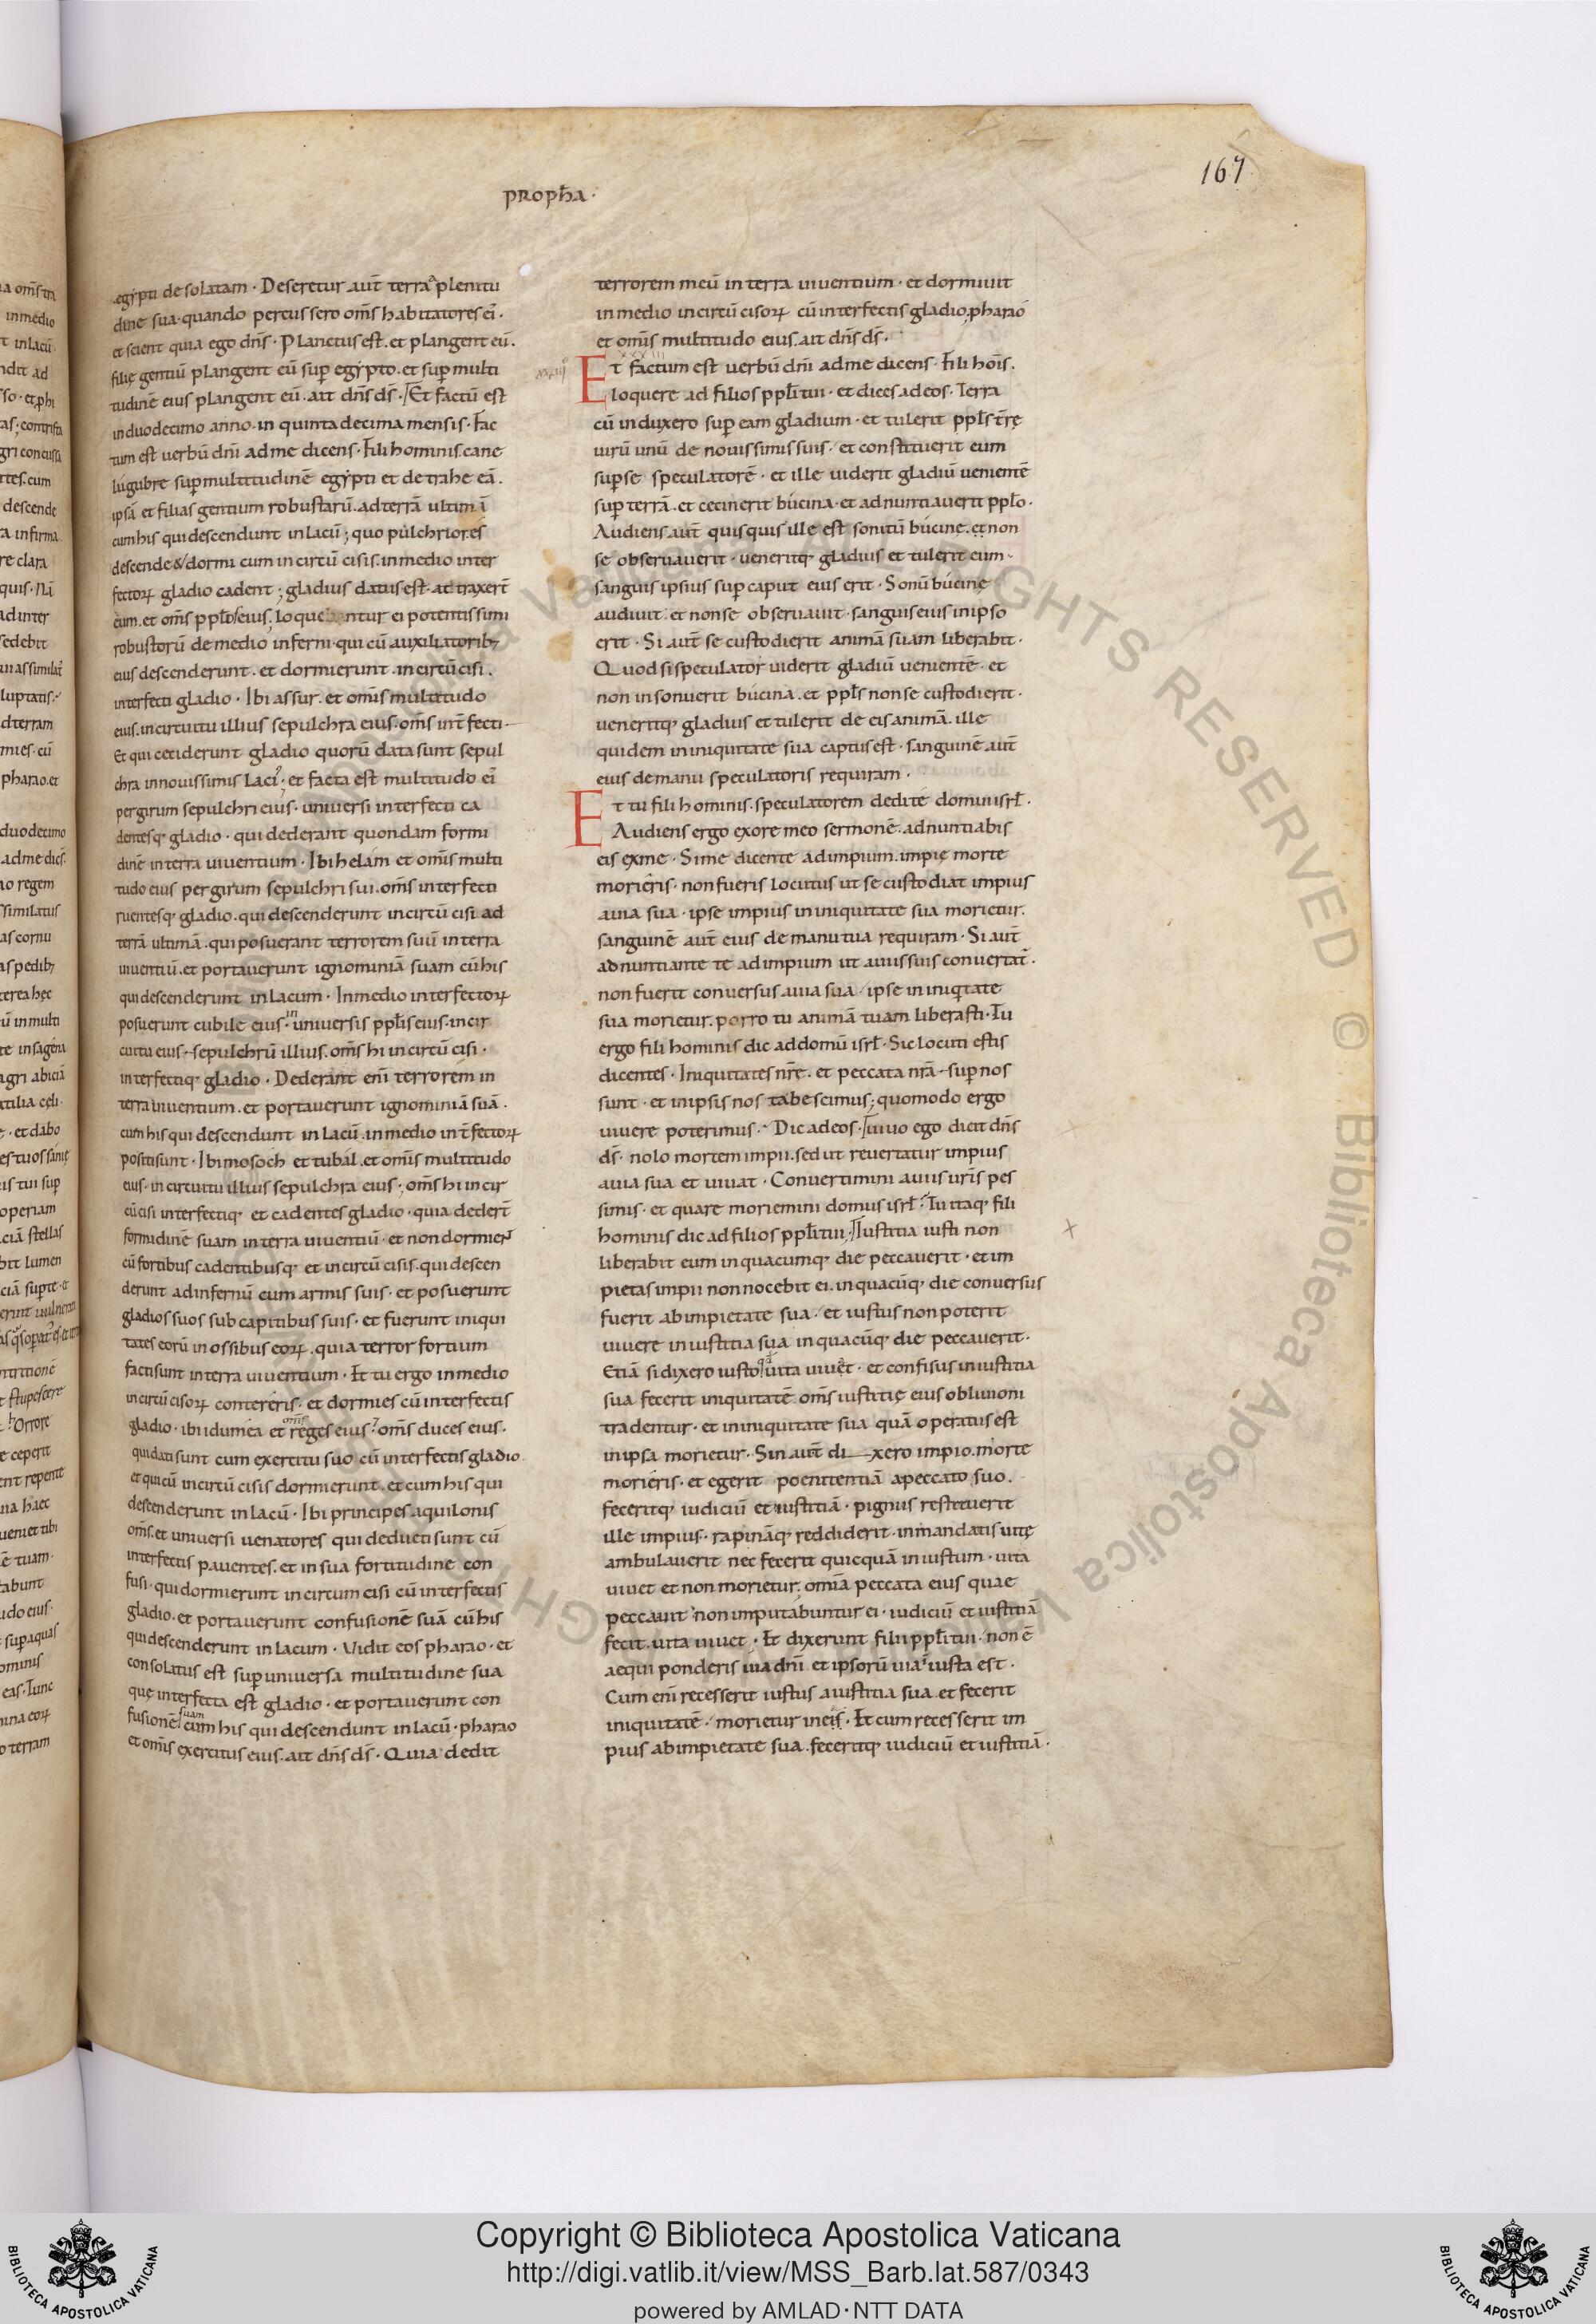 167
proph̄a·
ęgypti desolatam · Deseretur aut̄ terra a plenitu
dine sua· quando percussero om̄s habitatores ei᷒·
et scient quia ego dn̄s · Planctus est· et plangent eū·
filię gentiū plangent eū sup̄ egypto· et sup̄ multi
tudinē eius plangent eū· ait dn̄s ds̄· Et factū est
in duodecimo anno· in quinta decima mensis· Fac
tum est uerbū dn̄i ad me dicens· Fili hominis cane
lugubre sup̄ multitudinē egypti et detrahe eā·
ipsā et filias gentium robustarū· ad terrā ultimā
cum his qui descendunt in lacū; quo pulchrior es
descende & dormi cum incircūcisis· in medio inter
fectoꝝ gladio cadent; gladius datus est· attraxer̄t
eum· et om̄s ppl̄os eius; loquentur ei potentissimi
robustorū de medio inferni· qui cū auxiliatorib;
eius descenderunt· et dormierunt· incircūcisi·
interfecti gladio· Ibi assur· et om̄is multitudo
eius· in circuitu illius sepulchra eius· om̄s int̄fecti·
Et qui ceciderunt gladio quorū data sunt sepul
chra in nouissimis laci; et facta est multitudo ei᷒
per girum sepulchri eius· uniuersi interfecti ca
dentesq; gladio· qui dederant quondam formi
dinē in terra uiuentium· Ibi helam et om̄is multi
tudo eius per girum sepulchri sui· om̄s interfecti
ruentesq; gladio· qui descenderunt incircūcisi ad
terrā ultimā· qui posuerant terrorem suū in terra
uiuentiū· et portauerunt ignominiā suam cū his
qui descenderunt in lacum· In medio interfectoꝝ
posuerunt cubile eius· in uniuersis ppl̄is eius· in cir
cuitu eius sepulchrū illius· om̄s hi incircūcisi·
interfectiq; gladio· Dederant eni᷒ terrorem in
terra uiuentium· et portauerunt ignominiā suā·
cum his qui descendunt in lacū· in medio int̄fectoꝝ
positi sunt· Ibi mosoch et tubal· et om̄is multitudo
eius· in circuitu illius sepulchra eius; om̄s hi incir
cūcisi interfectiq; et cadentes gladio· quia deder̄t
formidinē suam in terra uiuentiū· et non dormier̄
cū fortibus cadentibusq; et incircūcisis· qui descen
derunt ad infernū cum armis suis· et posuerunt
gladios suos sub capitibus suis· et fuerunt iniqui
tates eorū in ossibus eoꝝ· quia terror fortium
facti sunt in terra uiuentium· Et tu ergo in medio
incircūcisoꝝ contereris· et dormies cū interfectis
gladio· ibi idumea et reges eius· om̄s duces eius·
qui dati sunt cum exercitu suo cū interfectis gladio
et qui cū incircūcisis dormierunt· et cum his qui
descenderunt in lacū· Ibi principes aquilonis
om̄s· et uniuersi uenatores qui deducti sunt cū
interfectis pauentes· et in sua fortitudine con
fusi· qui dormierunt incircumcisi cū interfectis
gladio· et portauerunt confusionē suā cū his
qui descenderunt in lacum· Vidit eos pharao· et
consolatus est sup̄ uniuersa multitudine sua
quę interfecta est gladio· et portauerunt con
fusionē suam cum his qui descendunt in lacū· pharao
et om̄is exercitus eius· ait dn̄s ds̄· Quia dedit
terrorem meū in terra uiuentium· et dormiuit
in medio incircūcisoꝝ cū interfectis gladio, pharao
et om̄is multitudo eius· ait dn̄s ds̄·
Et factum est uerbū dn̄i ad me dicens· Fili hoīs·
loquere ad filios ppl̄i tui· et dices ad eos· Terra
cū induxero sup̄ eam gladium· et tulerit ppl̄s t̄rę
uirū unū de nouissimis suis· et constituerit eum
sup̄ se speculatorē· et ille uiderit gladiū uenientē
sup̄ terrā· et cecinerit bucina· et adnuntiauerit ppl̄o·
Audiens aut̄ quisquis ille est sonitū bucinę· et non
se obseruauerit· ueneritq; gladius et tulerit eum·
sanguis ipsius sup̄ caput eius erit· Sonū bucinę
audiuit· et non se obseruauit· sanguis eius in ipso
erit· Si aut̄ se custodierit animā suam liberabit·
Quod si speculator uiderit gladiū uenientē· et
non insonuerit bucina· et ppl̄s non se custodierit·
ueneritq; gladius et tulerit de eis animā· ille
quidem in iniquitate sua captus est· sanguinē aut̄
eius de manu speculatoris requiram·
Et tu fili hominis· speculatorem dedi te domui isrl̄·
Audiens ergo ex ore meo sermonē· adnuntiabis
eis ex me· Si me dicente ad impium· impię morte
morieris· non fueris locutus ut se custodiat impius
a uia sua· ipse impius in iniquitate sua morietur·
sanguinē aut̄ eius de manu tua requiram· Si aut̄
adnuntiante te ad impium ut a uiis suis conuertat̄·
non fuerit conuersus a uia sua· ipse in iniqitate
sua morietur· porro tu animā tuam liberasti· Tu
ergo fili hominis dic ad domū isrl̄· Sic locuti estis
dicentes· Iniquitates nr̄ę· et peccata nr̄a sup̄ nos
sunt· et in ipsis nos tabescimus; quomodo ergo
uiuere poterimus· Dic ad eos· Viuo ego dicit dn̄s
ds̄· nolo mortem impii· sed ut reuertatur impius
a uia sua et uiuat· Conuertimini a uiis ur̄is pes
simis· et quare moriemini domus isrl̄· Tu itaq; fili
hominis dic ad filios ppl̄i tui· Iustitia iusti non
liberabit eum in quacumq; die peccauerit· et im
pietas impii non nocebit ei· in quacūq; die conuersus
fuerit ab impietate sua· et iustus non poterit
uiuere in iustitia sua in quacūq; die peccauerit·
Etiā si dixero iusto qd̄ uita uiuet· et confisus in iustitia
sua fecerit iniquitatē om̄s iustitię eius obliuioni
tradentur· et in iniquitate sua quā operatus est
in ipsa morietur· Sin aut̄ dixero impio· morte
morieris· et egerit poenitentiā a peccato suo·
feceritq; iudiciū et iustitiā· pignus restituerit
ille impius· rapināq; reddiderit· in mandatis uitę
ambulauerit nec fecerit quicquā iniustum· uita
uiuet et non morietur; omīa peccata eius quae
peccauit non imputabuntur ei· iudiciū et iustitiā
fecit· uita uiuet· Et dixerunt filii ppl̄i tui· non ē
aequi ponderis uia dn̄i· et ipsorū uia iniusta est·
Cum eni᷒ recesserit iustus a iustitia sua· et fecerit
iniquitatē· morietur in eis· Et cum recesserit im
pius ab impietate sua· feceritq; iudiciū et iustitiā·
Copyright © Biblioteca Apostolica Vaticana
http://digi.vatlib.it/view/MSS_Barb.lat.587/0343
powered by AMLAD·NTT DATA